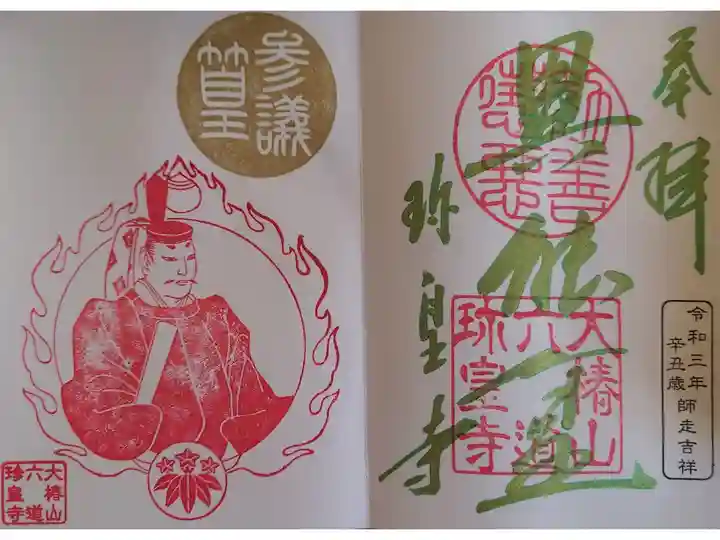 奉拝
勧善
懲悪
大椿山
六道
珍皇寺
珎皇寺
令和三年
辛丑歳
師走吉祥
参議
篁
大椿山
六道
珍皇寺